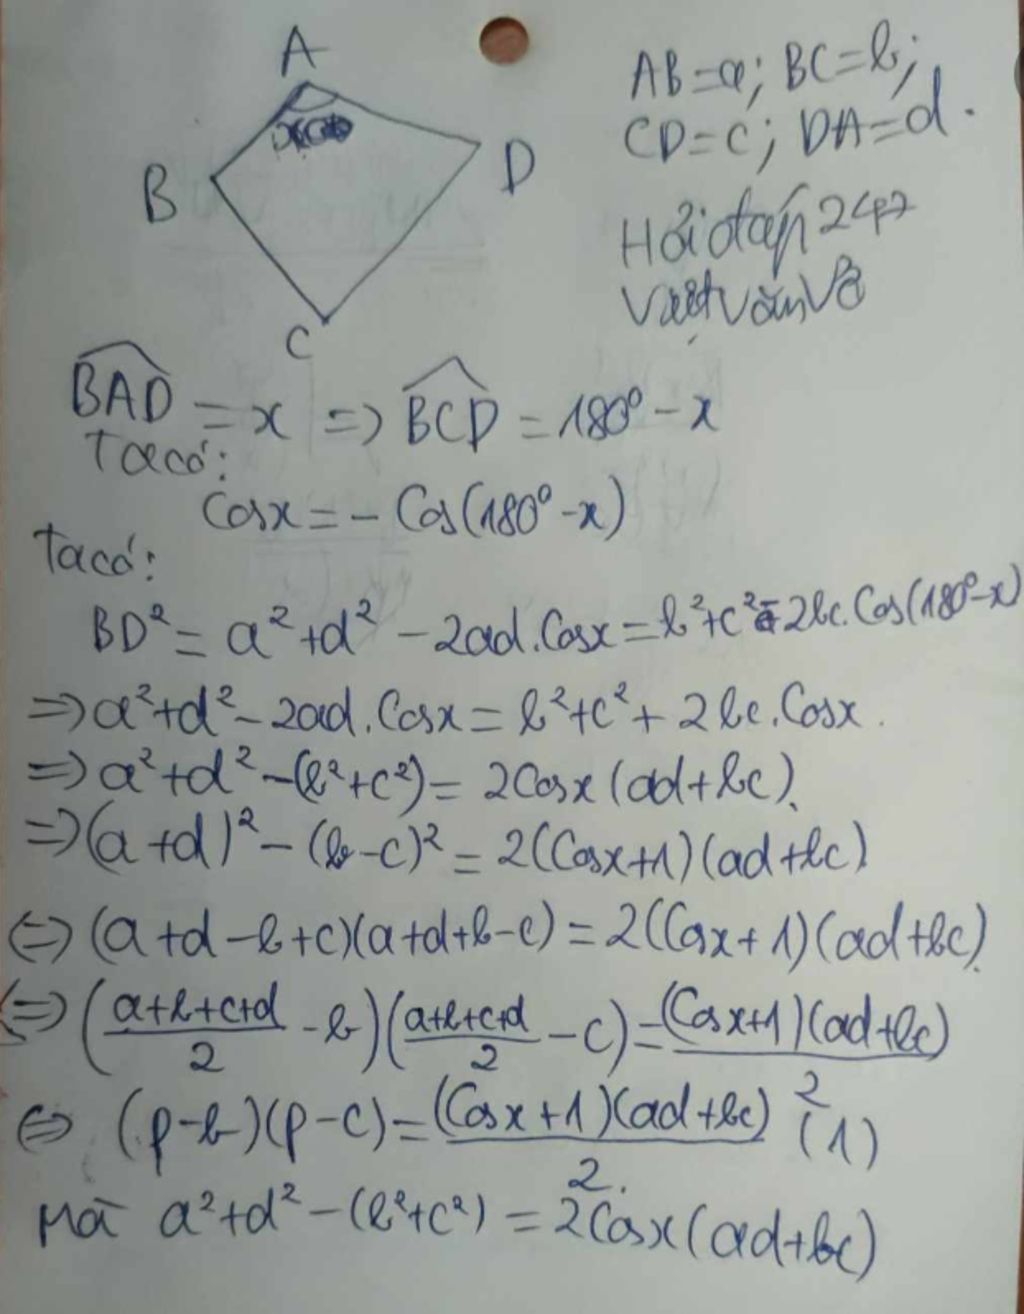 A
B
D
C
AB=a; BC=b;
CD=c; DA=d.
Hỏi đáp 247
Việt Văn Võ
BAD = x => BCD = 180° - x
Ta có:
Cosx = - Cos(180° - x)
Ta có:
BD² = a² + d² - 2ad.Cosx = b² + c² - 2bc.Cos(180° - x)
=> a² + d² - 2ad.Cosx = b² + c² + 2bc.Cosx.
=> a² + d² - (b² + c²) = 2Cosx(ad + bc).
=> (a + d)² - (b - c)² = 2(Cosx + 1)(ad + bc)
<=> (a + d - b + c)(a + d + b - c) = 2(Cosx + 1)(ad + bc).
<=> ((a+b+c+d)/2 - b)((a+b+c+d)/2 - c) = (Cosx+1)(ad+bc)/2
<=> (p - b)(p - c) = (Cosx + 1)(ad + bc)/2. (1)
Mà a² + d² - (b² + c²) = 2Cosx(ad + bc)